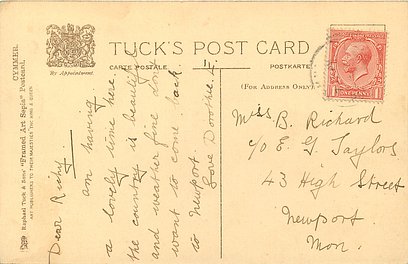 CYMMER.
Raphael Tuck & Sons' "Framed Art Sepia" Postcard.
ART PUBLISHERS TO THEIR MAJESTIES THE KING & QUEEN
By Appointment.
TUCK'S POST CARD
CARTE POSTALE
POSTKARTE
(FOR ADDRESS ONLY)
Dear Richy.
am having
a lovely time here.
the country is beautiful
and weather fine dont
want to come back
to Newport.
Love Dorothie.
Miss B. Richard
c/o E G Taylors
43 High Street
Newport.
Mon.
ONE PENNY
1 1